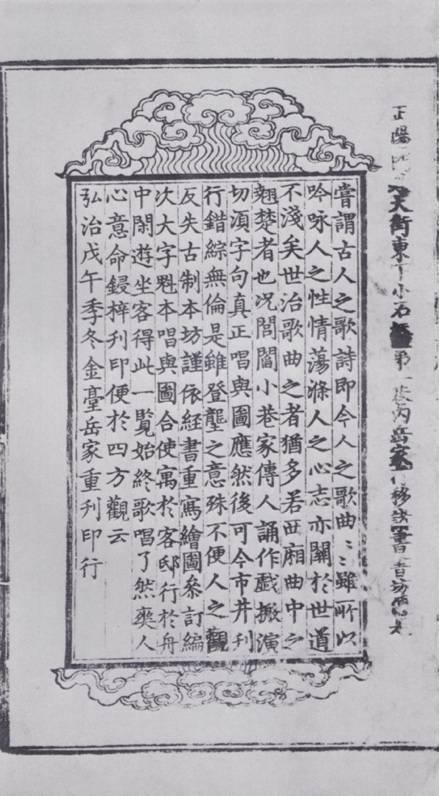 正陽大街東下小石第一巷內岳家移書書坊是
嘗謂古人之歌詩即今人之歌曲〻雖所以
吟咏人之性情蕩滌人之心志亦關於世道
不淺矣世治歌曲之者猶多若西廂曲中之
翹楚者也况閭閻小巷家傳人誦作戲搬演
切湏字句真正唱與圖應然後可今市井刊
行錯綜無倫是雖登壟之意殊不便人之觀
反失古制本坊謹依経書重寫繪圖参訂編
次大字魁本唱與圖合使寓於客邸行於舟
中閑遊坐客得此一覧始終歌唱了然爽人
心意命鋟梓刊印便於四方觀云
弘治戊午季冬金臺岳家重刊印行